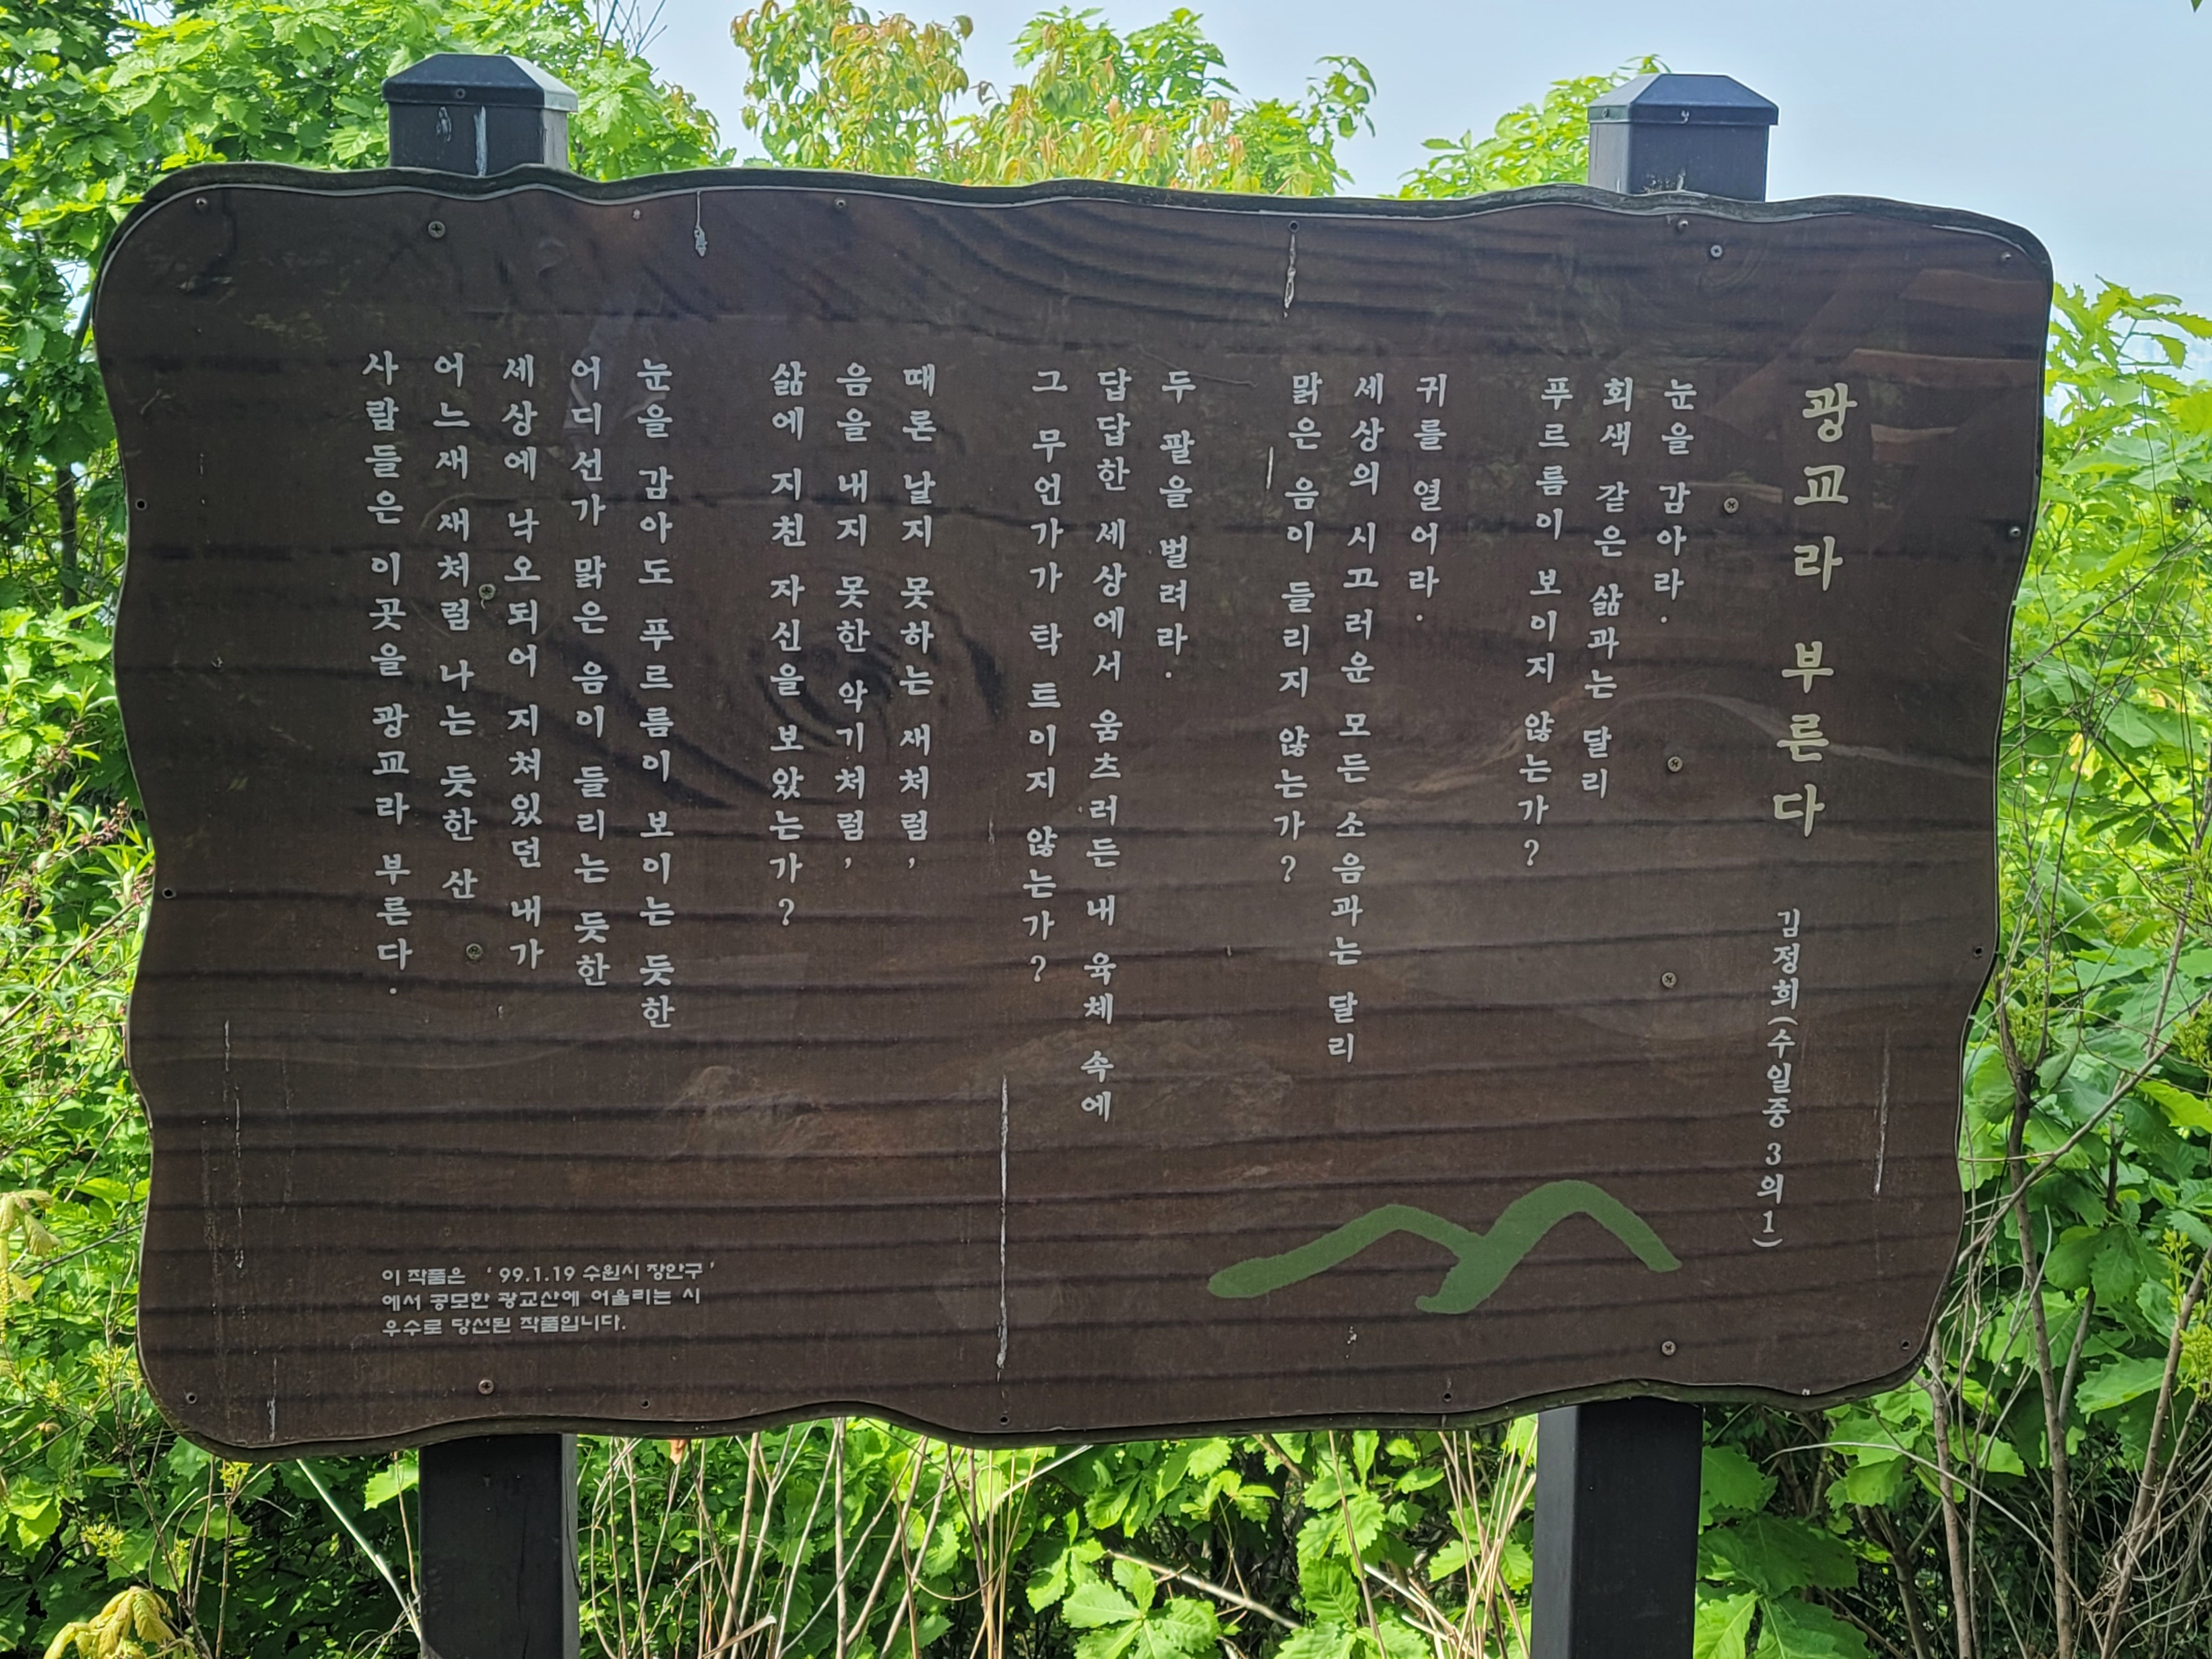 광교라 부른다
김정희(수일중 3의1)
눈을 감아라.
회색 같은 삶과는 달리
푸르름이 보이지 않는가?
귀를 열어라.
세상의 시끄러운 모든 소음과는 달리
맑은 음이 들리지 않는가?
두 팔을 벌려라.
답답한 세상에서 움츠러든 내 육체 속에
그 무언가가 탁 트이지 않는가?
때론 날지 못하는 새처럼,
음을 내지 못한 악기처럼,
삶에 지친 자신을 보았는가?
눈을 감아도 푸르름이 보이는 듯한
어디선가 맑은 음이 들리는 듯한
세상에 낙오되어 지쳐있던 내가
어느새 새처럼 나는 듯한 산
사람들은 이곳을 광교라 부른다.
이 작품은 '99.1.19 수원시 장안구'
에서 공모한 광교산에 어울리는 시
우수로 당선된 작품입니다.